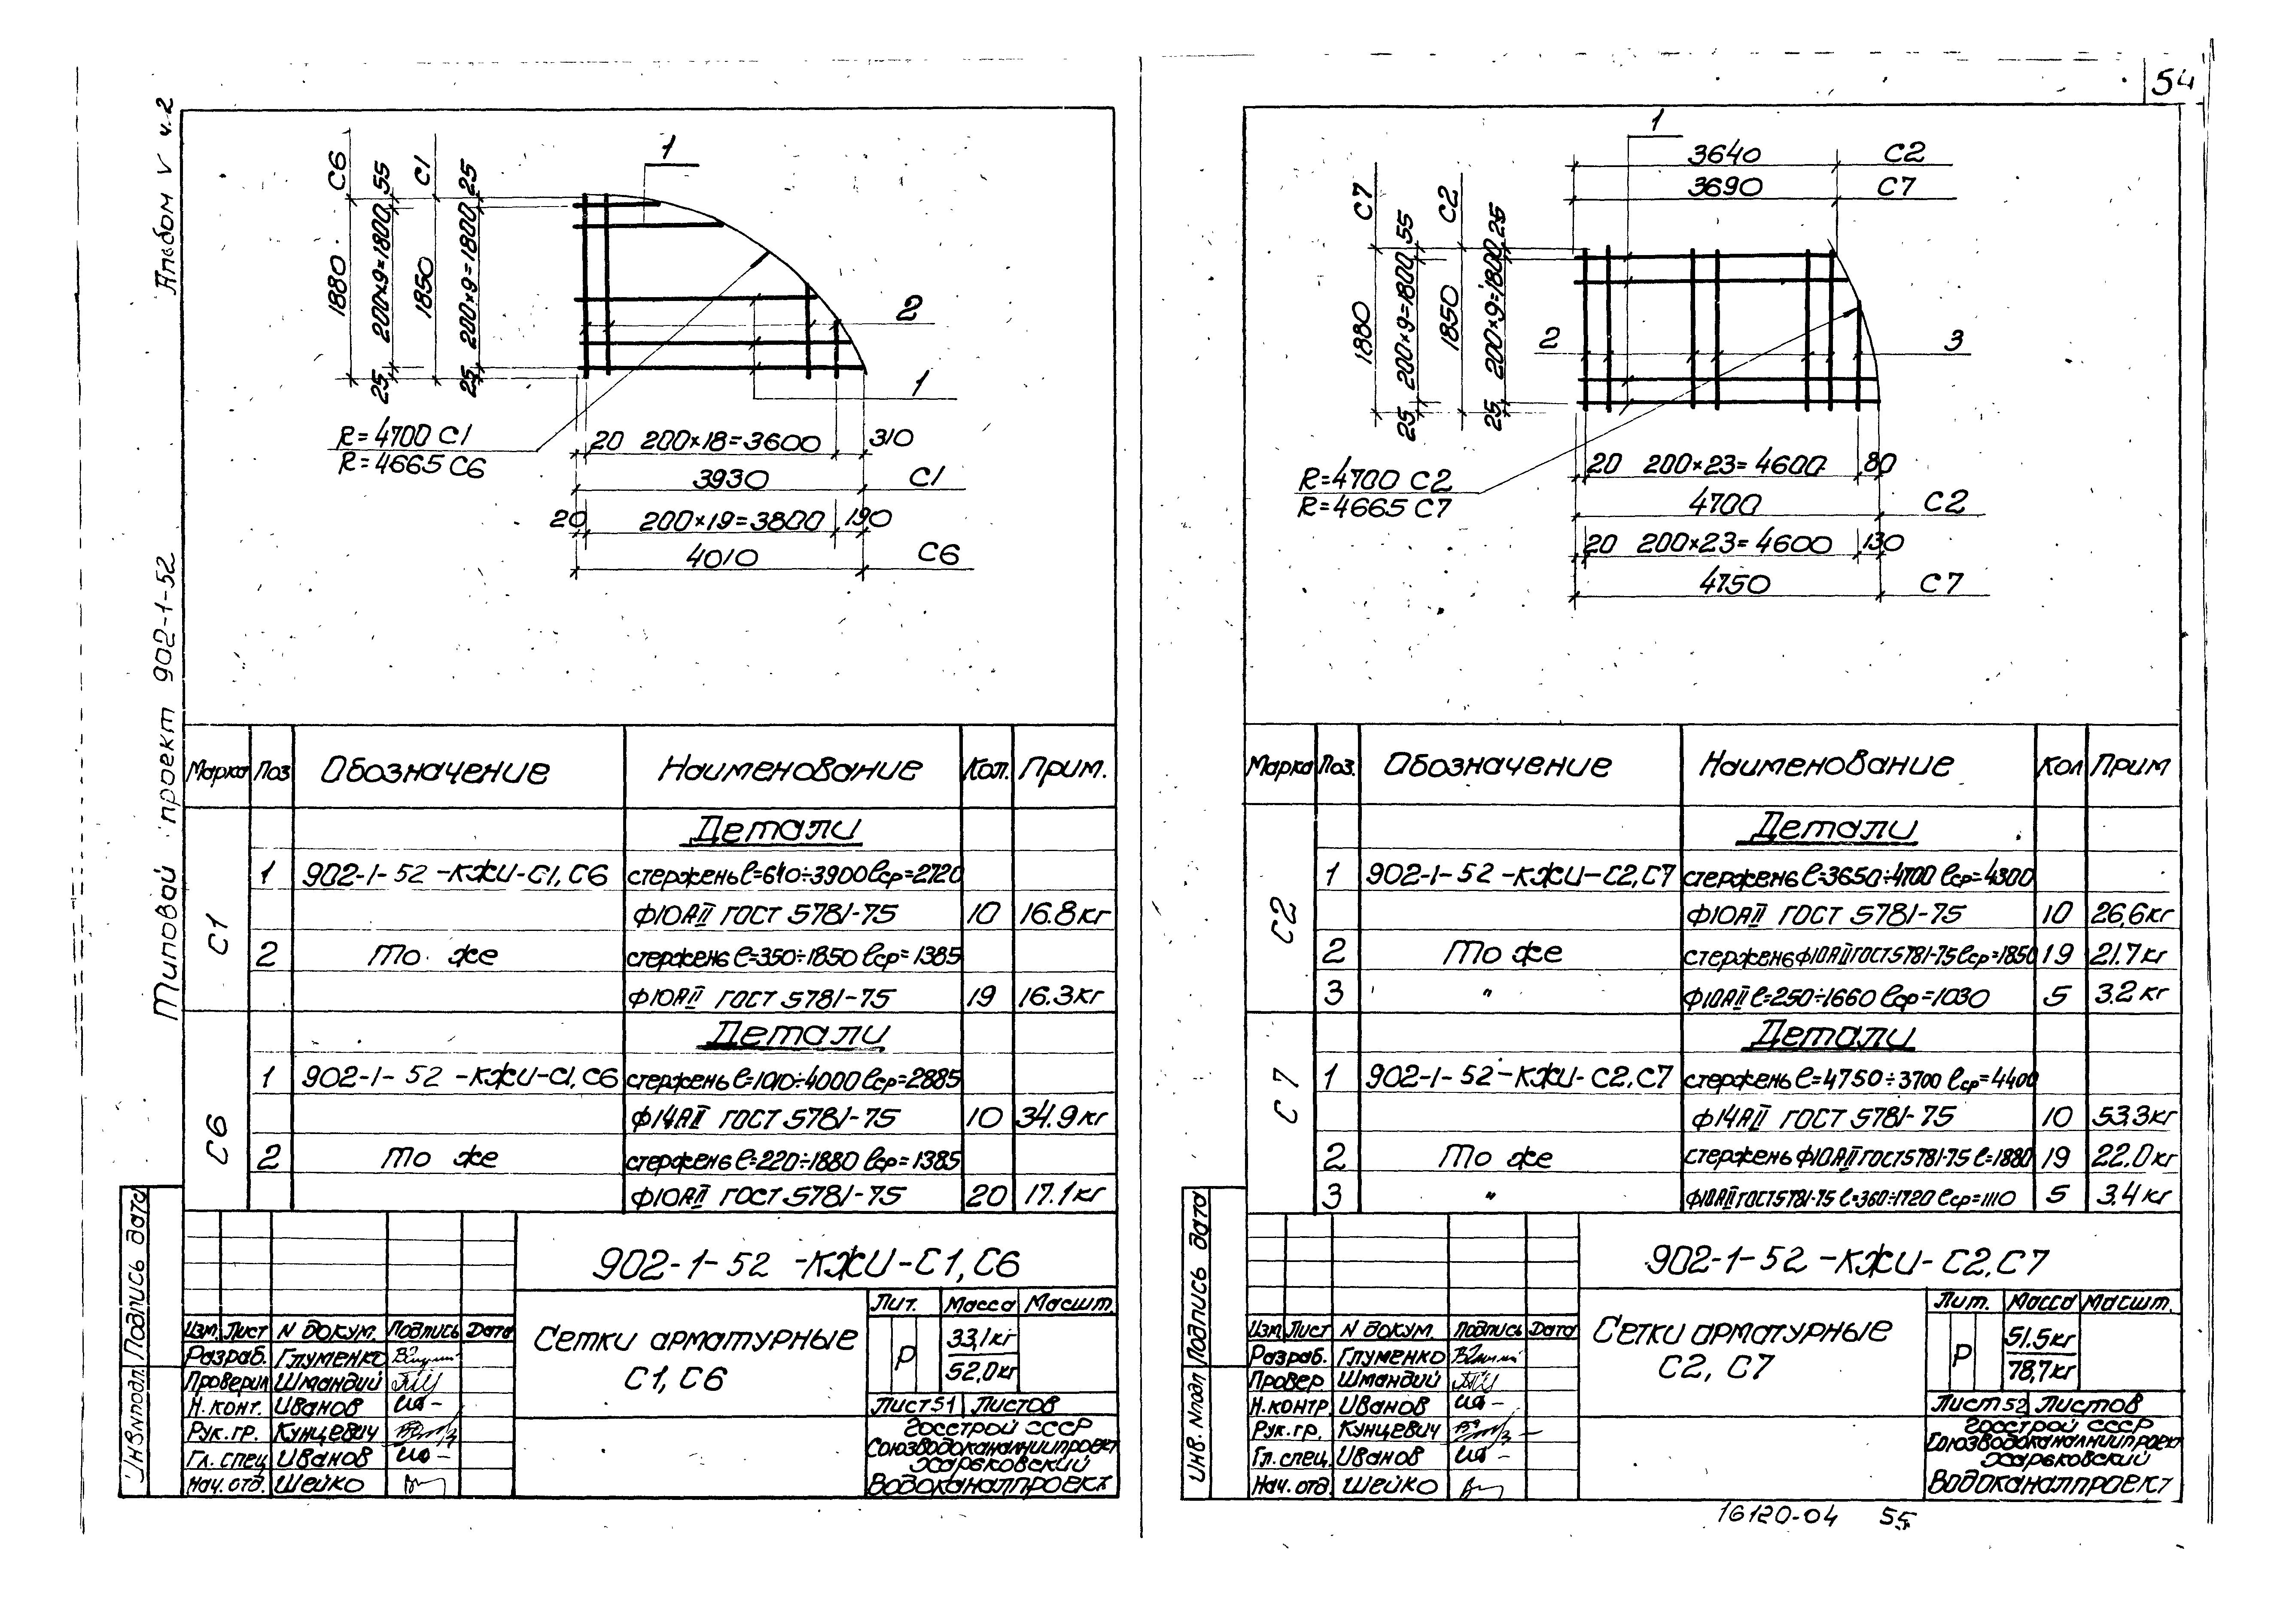 54
Альбом V ч.2
Типовой проект 902-1-52
1
С6
1880
55
200×9=1800
25
С1
1850
25
200×9=1800
25
2
1
R=4700 С1
R=4665 С6
20 200×18=3600 310
3930 С1
20 200×19=3800 190
4010 С6
Марка Поз Обозначение Наименование Кол. Прим.
Детали
С1
1 902-1-52-КЖИ-С1,С6 стержень ℓ=610÷3900 ℓср=2720
Ф10АII ГОСТ 5781-75 10 16.8кг
2 То же стержень ℓ=350÷1850 ℓср=1385
Ф10АII ГОСТ 5781-75 19 16.3кг
Детали
С6
1 902-1-52-КЖИ-С1,С6 стержень ℓ=1010÷4000 ℓср=2885
Ф14АII ГОСТ 5781-75 10 34.9кг
2 То же стержень ℓ=220÷1880 ℓср=1385
Ф10АII ГОСТ 5781-75 20 17.1кг
902-1-52-КЖИ-С1,С6
Изм. Лист N докум. Подпись Дата
Разраб. Глуменко
Проверил Шмандий
Н.конт. Иванов
Рук.гр. Кунцевич
Гл.спец. Иванов
Нач.отд. Шейко
Сетки арматурные
С1, С6
Лит. Масса Масшт.
Р 33,1кг
52,0кг
Лист 51 Листов
Госстрой СССР
Союзводоканалниипроект
Харьковский
Водоканалпроект
Инв.Nподл. Подпись дата
1
3640 С2
3690 С7
С7
1880
55
200×9=1800
25
С2
1850
25
200×9=1800
25
2
3
R=4700 С2
R=4665 С7
20 200×23=4600 80
4700 С2
20 200×23=4600 130
4750 С7
Марка Поз. Обозначение Наименование Кол Прим
Детали
С2
1 902-1-52-КЖИ-С2,С7 стержень ℓ=3650÷4700 ℓср=4300
Ф10АII ГОСТ 5781-75 10 26,6кг
2 То же стержень Ф10АII ГОСТ 5781-75 ℓср=1850 19 21.7кг
3 " Ф10АII ℓ=250÷1660 ℓср=1030 5 3.2кг
Детали
С7
1 902-1-52-КЖИ-С2,С7 стержень ℓ=4750÷3700 ℓср=4400
Ф14АII ГОСТ 5781-75 10 53.3кг
2 То же стержень Ф10АII ГОСТ 5781-75 ℓ=1880 19 22.0кг
3 " Ф10АII ГОСТ 5781-75 ℓ=360÷1720 ℓср=1110 5 3.4кг
902-1-52-КЖИ-С2,С7
Изм Лист N докум. Подпись Дата
Разраб. Глуменко
Провер. Шмандий
Н.контр. Иванов
Рук.гр. Кунцевич
Гл.спец. Иванов
Нач.отд. Шейко
Сетки арматурные
С2, С7
Лит. Масса Масшт.
Р 51.5кг
78,7кг
Лист 52 Листов
Госстрой СССР
Союзводоканалниипроект
Харьковский
Водоканалпроект
Инв.Nподл Подпись дата
16120-04 55